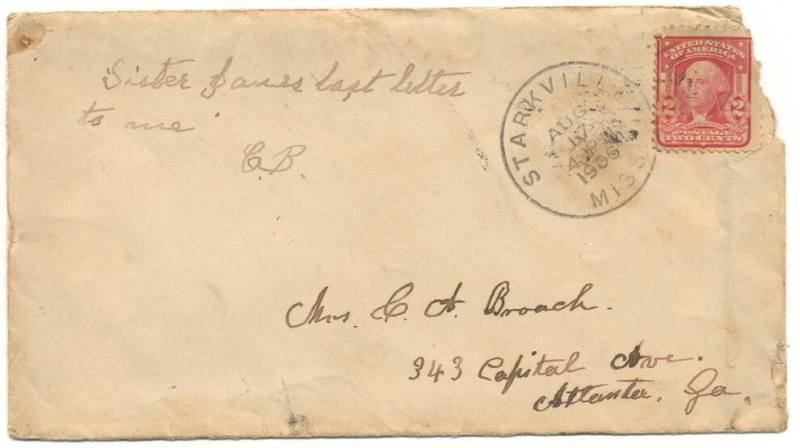 Sister Janes last letter
to me
C.B.
STARKVILLE
MISS
AUG
17
4 PM
190
UNITED STATES
OF AMERICA
2 2
POSTAGE
TWO CENTS
Mrs. C. A. Broach.
343 Capital Ave.
Atlanta, Ga.